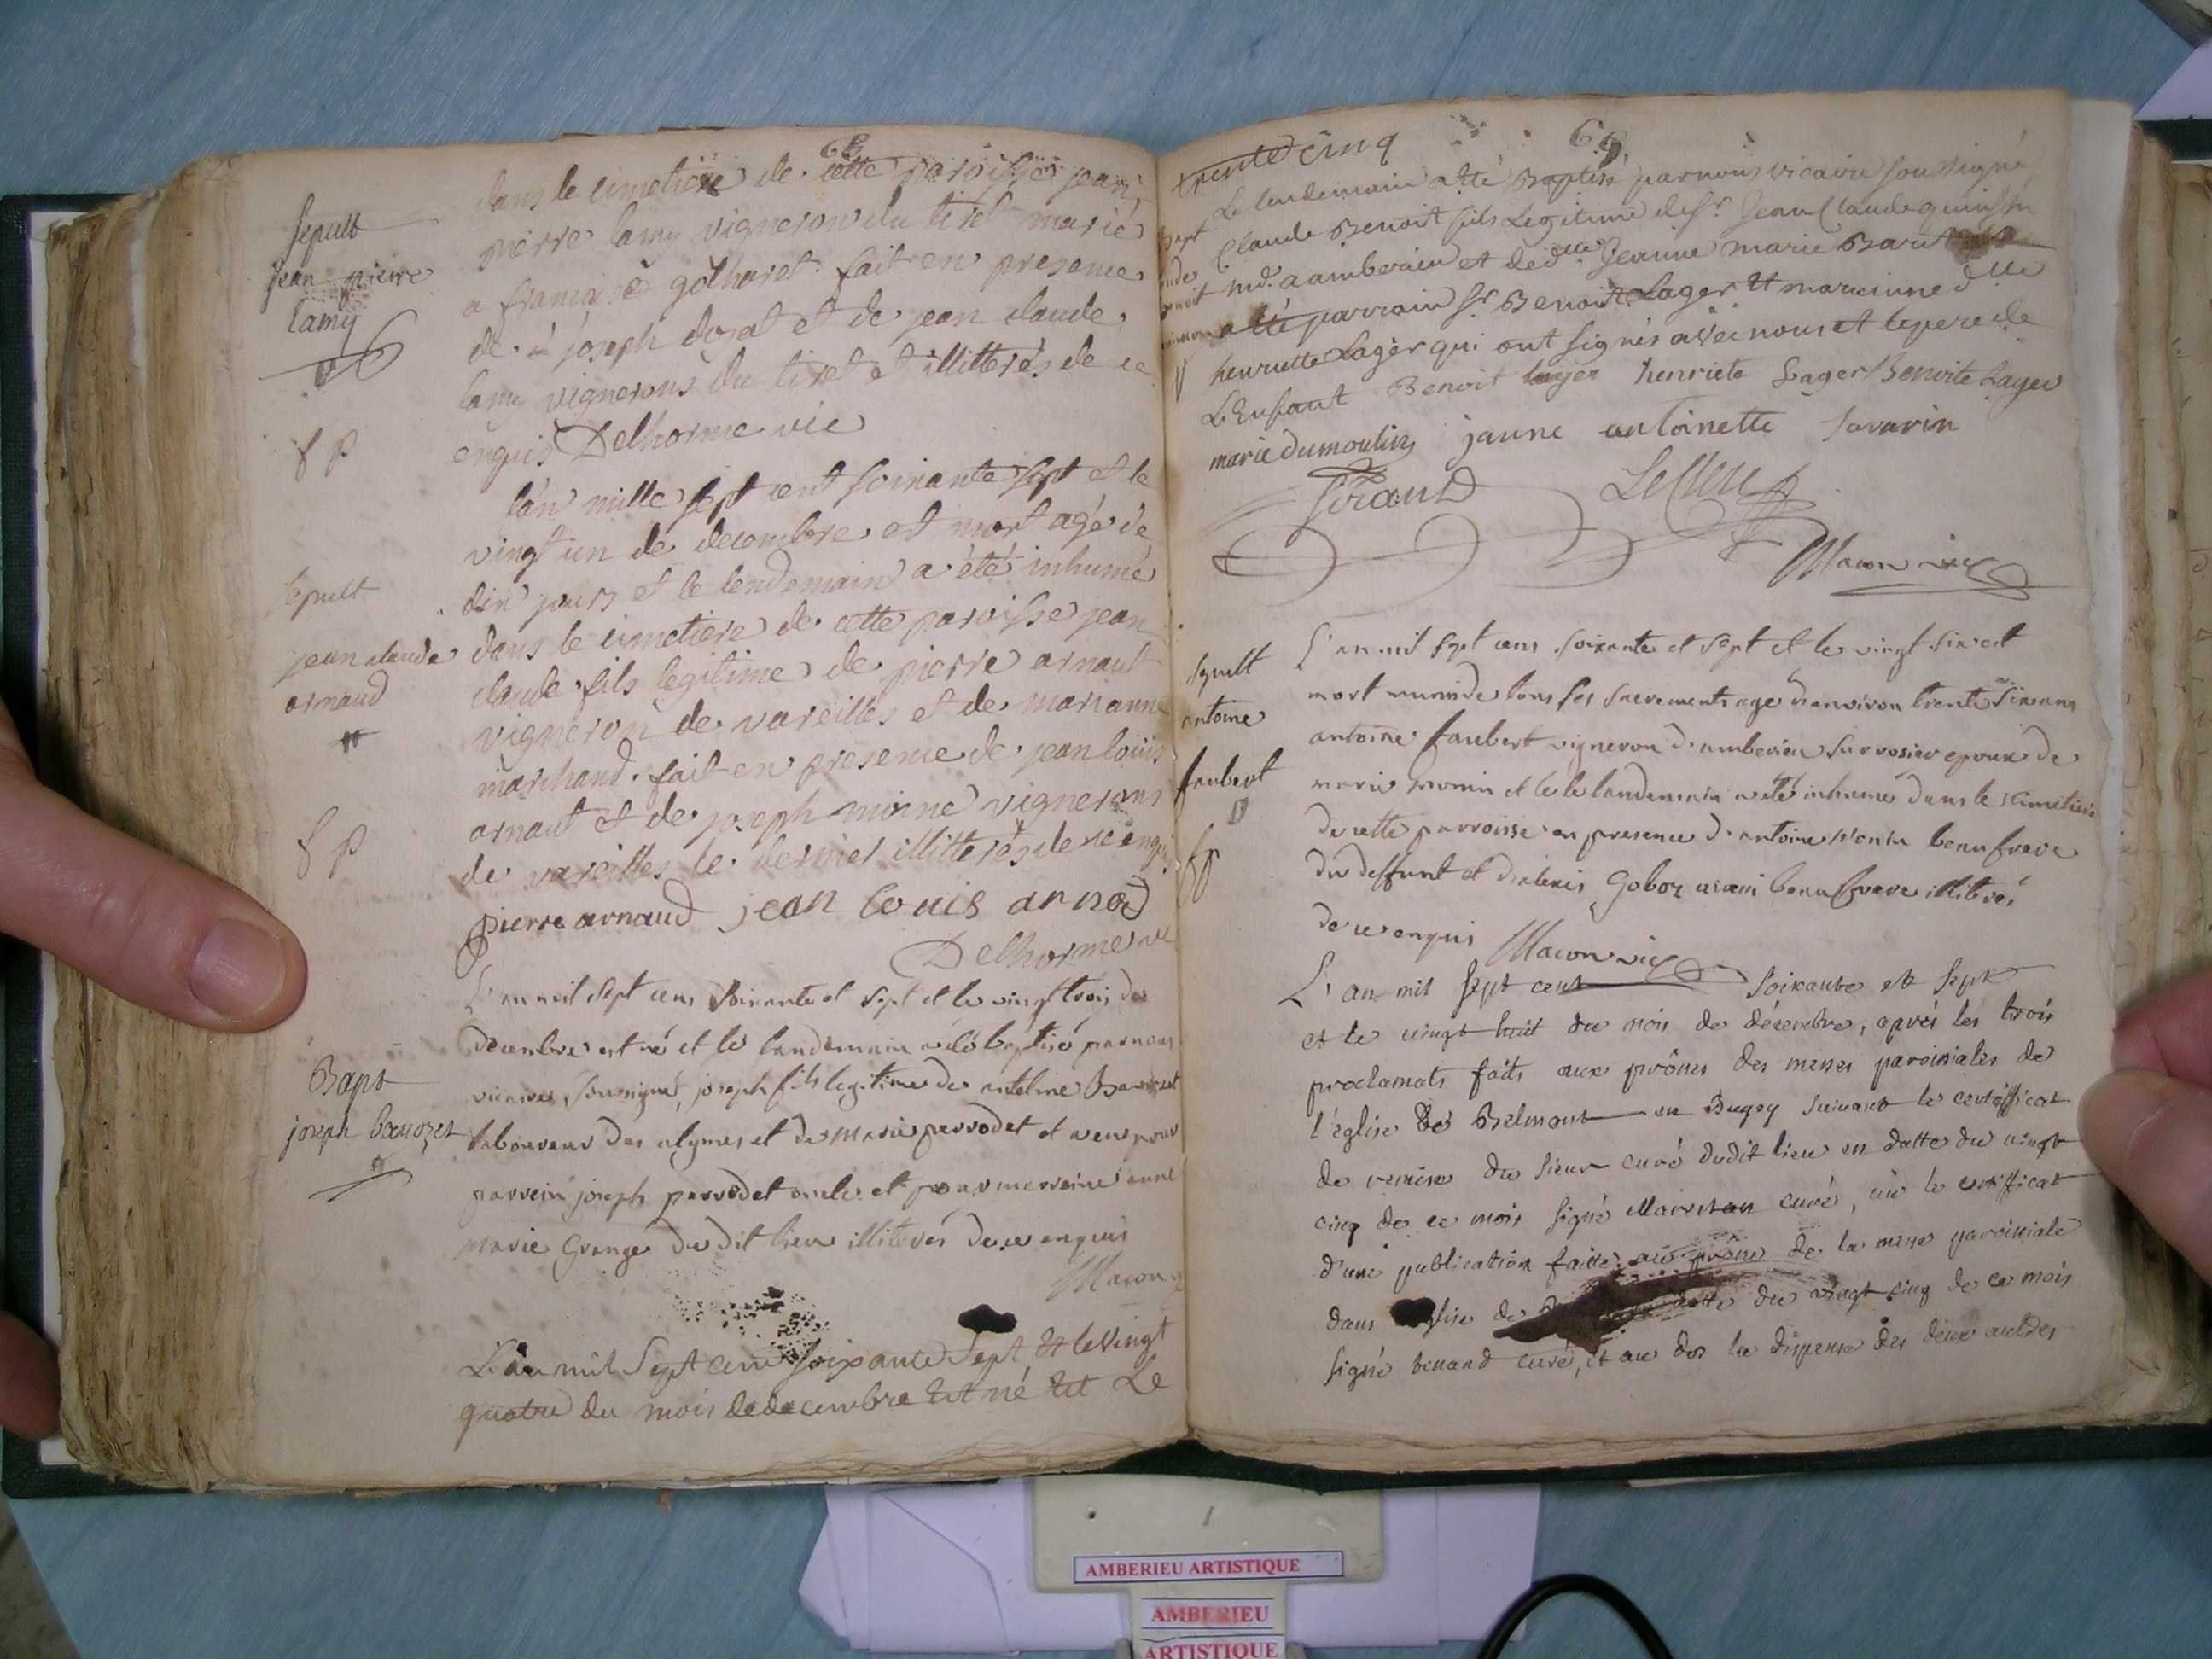 68
dans le cimetiere de cette paroisse jean
pierre lamy vigneron du tiret marié
a françoise gotharet fait en presence
de joseph dosat et de jean claude
lamy vignerons du tiret et illitterés de ce
enquis Delhorme vic
Sepult
jean pierre
lamy
f p
l'an mille sept cent soixante sept et le
vingt un de decembre est mort agé de
dix jours et le lendemain a été inhumé
dans le cimetiere de cette paroisse jean
claude fils legitime de pierre arnaut
vigneron de vareilles et de marianne
marchand. fait en presence de jean loüis
arnaut et de joseph moine vignerons
de vareilles le dernier illitterés de ce enquis
pierre arnaud jean louis arnod
Delhorme vic
Sepult
jean claude
arnaud
f p
L'an mil sept cens soixante et sept et le vingt trois de
decembre est né et le landemain a été baptisé par nous
vicaire soussigné, joseph fils legitime de antelme Bavozet
laboureur des alymes et de Marie perrodet et a eu pour
parrein joseph perrodet oncle et pour marreine anne
marie Grange du dit lieu illiterés de ce enquis
Macon
Bapt
joseph bavozet
L'an mil Sept cent soixante Sept et le vingt
quatre du mois de decembre est né et Le
trente cinq
69
Le lendemain a été Baptisé par nous vicaire soussigné
Claude Benoit fils Legitime de sr. Jean Claude
md. a amberieu et de dlle Jeanne marie
a été parrain sr. Benoit Lager et marienne dlle
henriette Lager qui ont signés avec nous et le pere de
L'Enfant Benoit lager henriete Lager Benoite Lager
marie dumoulin janne antoinette savarin
Macon vic
L'an mil sept cens soixante et sept et le vingt six est
mort muni de tous ses sacrements age d'environ trente six ans
antoine faubert vigneron d'amberieu epoux de
marie monin et le landemain a été inhumé dans le cimetiere
de cette parroisse en presence d'antoine monin beaufrere
du deffunt et d'alexis Goboz aussi beaufrere illiterés
de ce enquis Macon vic
Sepult
antoine
faubert
fp
L'an mil sept cent soixante et sept
et le vingt huit du mois de décembre, après les trois
proclamats faits aux prônes des messes paroissiales de
l'église de Belmont en Bugey suivant le certifficat
de remise du sieur curé dudit lieu en datte du vingt
cinq de ce mois signé curé, vû le certifficat
d'une publication faitte au prône de la messe paroissiale
dans l'église de datte du vingt cinq de ce mois
signé tenand curé, et au dos la dispense des deux autres
AMBERIEU ARTISTIQUE
AMBERIEU
ARTISTIQUE